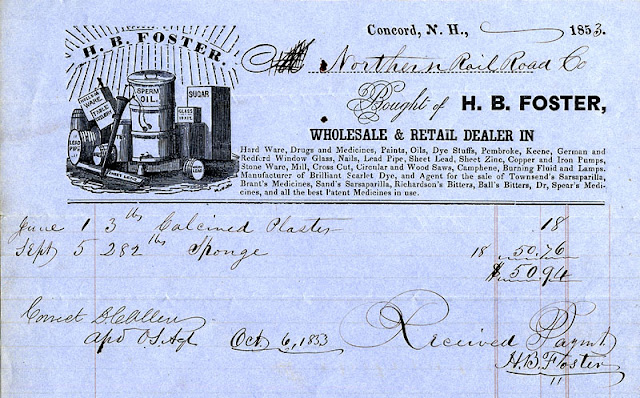 Concord, N. H., 1853.
H. B. FOSTER.
Northern Rail Road Co
Bought of H. B. FOSTER,
WHOLESALE & RETAIL DEALER IN
Hard Ware, Drugs and Medicines, Paints, Oils, Dye Stuffs, Pembroke, Keene, German and
Redford Window Glass, Nails, Lead Pipe, Sheet Lead, Sheet Zinc, Copper and Iron Pumps,
Stone Ware, Mill, Cross Cut, Circular and Wood Saws, Camphene, Burning Fluid and Lamps.
Manufacturer of Brilliant Scarlet Dye, and Agent for the sale of Townsend's Sarsaparilla,
Brant's Medicines, Sand's Sarsaparilla, Richardson's Bitters, Ball's Bitters, Dr, Spear's Medi-
cines, and all the best Patent Medicines in use.
SPERM
OIL
SUGAR
GLASS
WARE
TABLE
LEAD
PIPE
SHEET LEAD
June 1 3 lbs Calcined Plaster 18
Sept 5 282 lbs Sponge 18 50.76
$50.94
Correct
Oct 6, 1853
Received Paymt
H. B. Foster